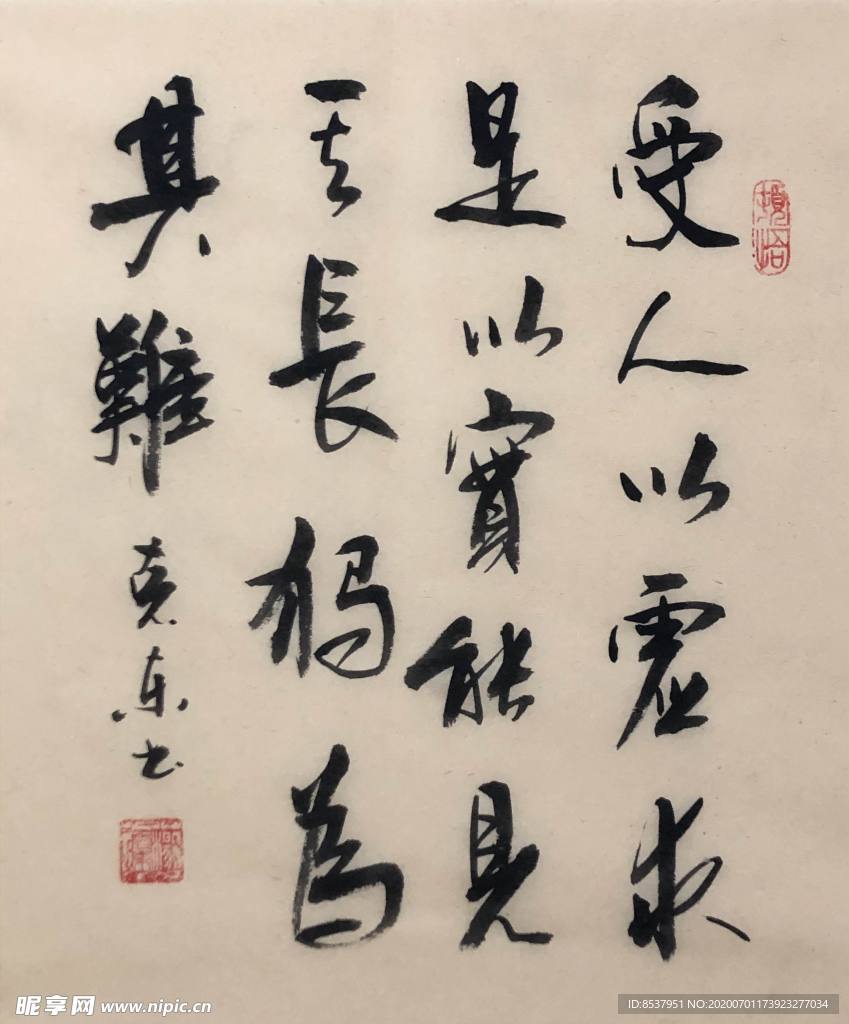 受人以虛求
是以實能見
其長獨為
其難
克东书
昵享网 www.nipic.cn
ID:8537951 NO:20200701173923277034